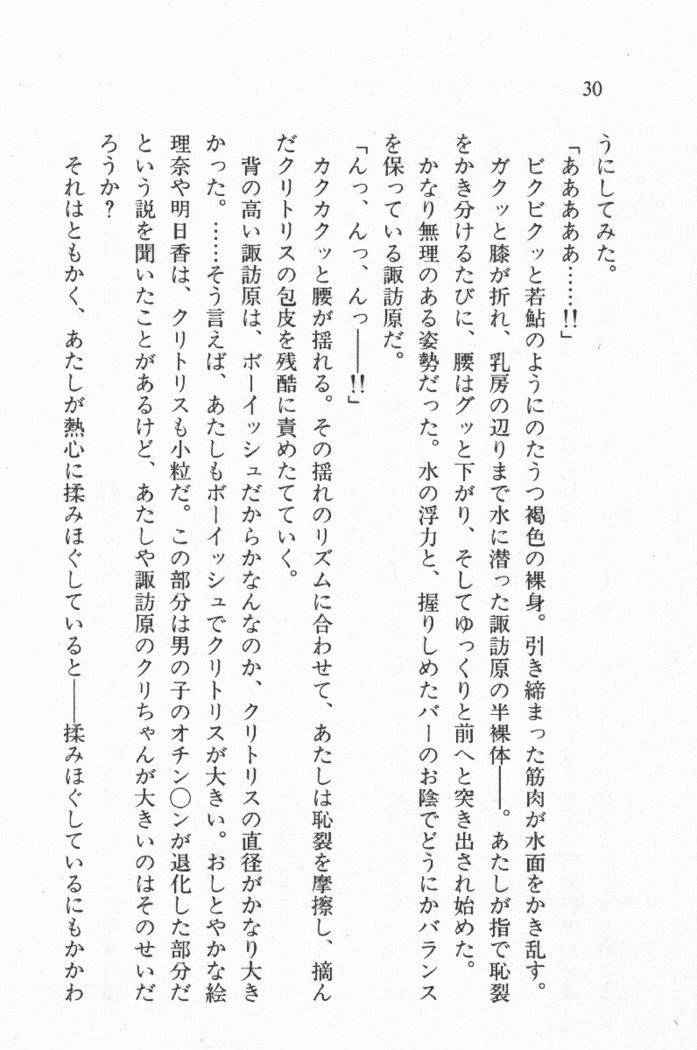 30
うにしてみた。
「あああああ……!!」
ビクビクッと若鮎のようにのたうつ褐色の裸身。引き締まった筋肉が水面をかき乱す。
ガクッと膝が折れ、乳房の辺りまで水に潜った諏訪原の半裸体――。あたしが指で恥裂
をかき分けるたびに、腰はグッと下がり、そしてゆっくりと前へと突き出され始めた。
かなり無理のある姿勢だった。水の浮力と、握りしめたバーのお陰でどうにかバランス
を保っている諏訪原だ。
「んっ、んっ、んっ――!!」
カクカクッと腰が揺れる。その揺れのリズムに合わせて、あたしは恥裂を摩擦し、摘ん
だクリトリスの包皮を残酷に責めたてていく。
背の高い諏訪原は、ボーイッシュだからかなんなのか、クリトリスの直径がかなり大き
かった。……そう言えば、あたしもボーイッシュでクリトリスが大きい。おしとやかな絵
理奈や明日香は、クリトリスも小粒だ。この部分は男の子のオチン○ンが退化した部分だ
という説を聞いたことがあるけど、あたしや諏訪原のクリちゃんが大きいのはそのせいだ
ろうか?
それはともかく、あたしが熱心に揉みほぐしていると――揉みほぐしているにもかかわ